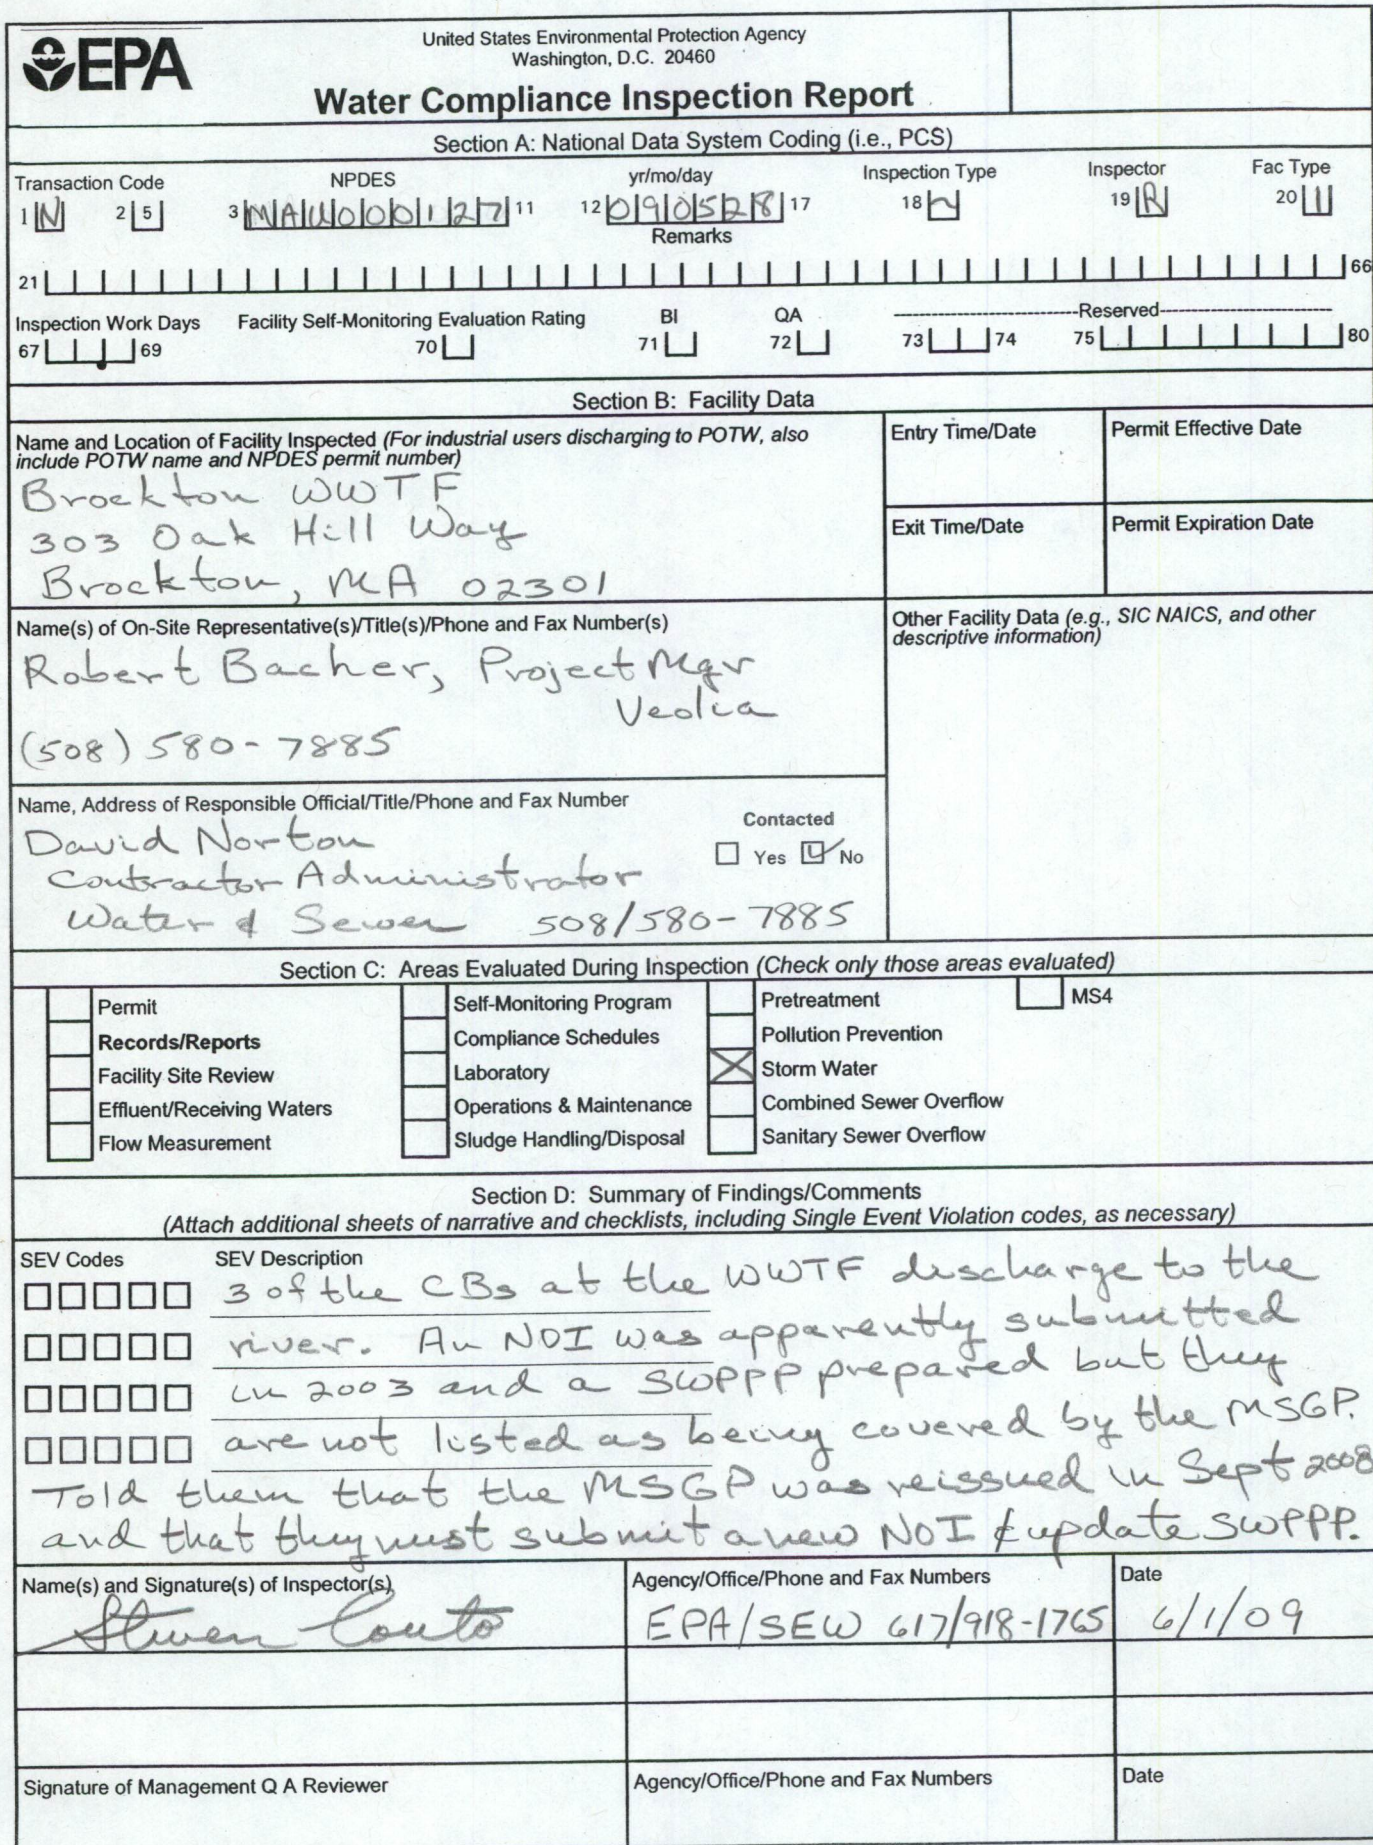 EPA
United States Environmental Protection Agency
Washington, D.C. 20460
Water Compliance Inspection Report
Section A: National Data System Coding (i.e., PCS)
Transaction Code NPDES yr/mo/day Inspection Type Inspector Fac Type
1 N 2 5 3 MAU000127 11 12 090528 17 18 19 R 20
Remarks
21 66
Inspection Work Days Facility Self-Monitoring Evaluation Rating BI QA Reserved
67 69 70 71 72 73 74 75 80
Section B: Facility Data
Name and Location of Facility Inspected (For industrial users discharging to POTW, also
include POTW name and NPDES permit number)
Brockton WWTF
303 Oak Hill Way
Brockton, MA 02301
Entry Time/Date
Permit Effective Date
Exit Time/Date
Permit Expiration Date
Name(s) of On-Site Representative(s)/Title(s)/Phone and Fax Number(s)
Robert Bacher, Project Mgr
Veolia
(508) 580-7885
Other Facility Data (e.g., SIC NAICS, and other
descriptive information)
Name, Address of Responsible Official/Title/Phone and Fax Number
David Norton
Contractor Administrator
Water & Sewer 508/580-7885
Contacted
Yes No
Section C: Areas Evaluated During Inspection (Check only those areas evaluated)
Permit Self-Monitoring Program Pretreatment MS4
Records/Reports Compliance Schedules Pollution Prevention
Facility Site Review Laboratory Storm Water
Effluent/Receiving Waters Operations & Maintenance Combined Sewer Overflow
Flow Measurement Sludge Handling/Disposal Sanitary Sewer Overflow
Section D: Summary of Findings/Comments
(Attach additional sheets of narrative and checklists, including Single Event Violation codes, as necessary)
SEV Codes SEV Description
3 of the CBs at the WWTF discharge to the
river. An NOI was apparently submitted
in 2003 and a SWPPP prepared but they
are not listed as being covered by the MSGP.
Told them that the MSGP was reissued in Sept 2008
and that they must submit a new NOI & update SWPPP.
Name(s) and Signature(s) of Inspector(s) Agency/Office/Phone and Fax Numbers Date
Steven Couto EPA/SEW 617/918-1765 6/1/09
Signature of Management Q A Reviewer Agency/Office/Phone and Fax Numbers Date